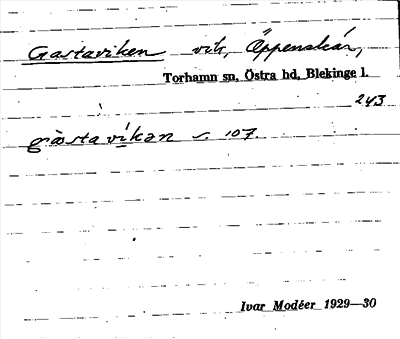 Gastaviken vik, Äppenskär,
Torhamn sn, Östra hd, Blekinge l.
243
gàsta víkan s. 107.
Ivar Modéer 1929—30